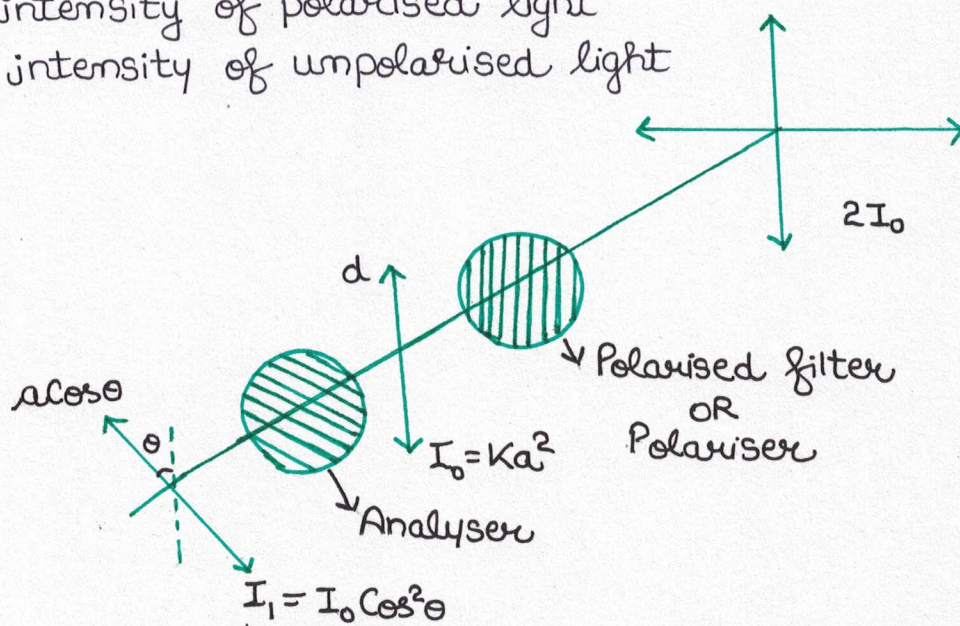 intensity of polarised light
intensity of unpolarised light
2I₀
d
Polarised filter
OR
Polariser
acosθ
θ
I₀=Ka²
Analyser
I₁ = I₀Cos²θ